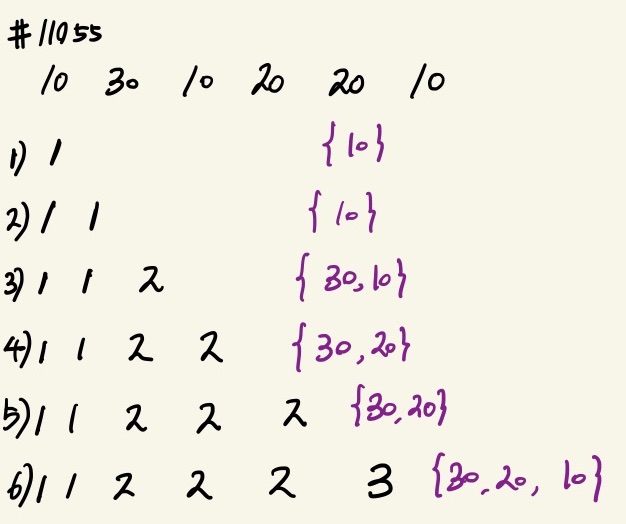 #11055
10 30 10 20 20 10
1) 1 {10}
2) 1 1 {10}
3) 1 1 2 {30,10}
4) 1 1 2 2 {30,20}
5) 1 1 2 2 2 {30,20}
6) 1 1 2 2 2 3 {30,20, 10}